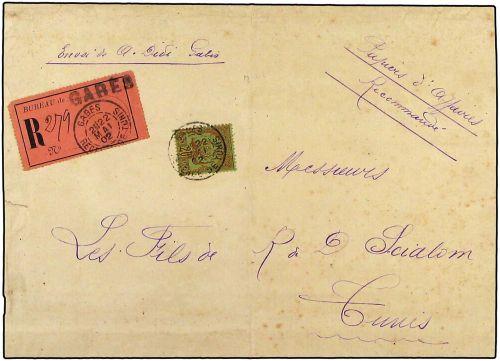 Envoi de A. Didi Gabès
Papiers d'Affaires
Recommandé
BUREAU de GABES
R 279
No
GABES
22
MAI
02
TUNIS
22
02
Messieurs
Les Fils de R de D Scialom
Tunis